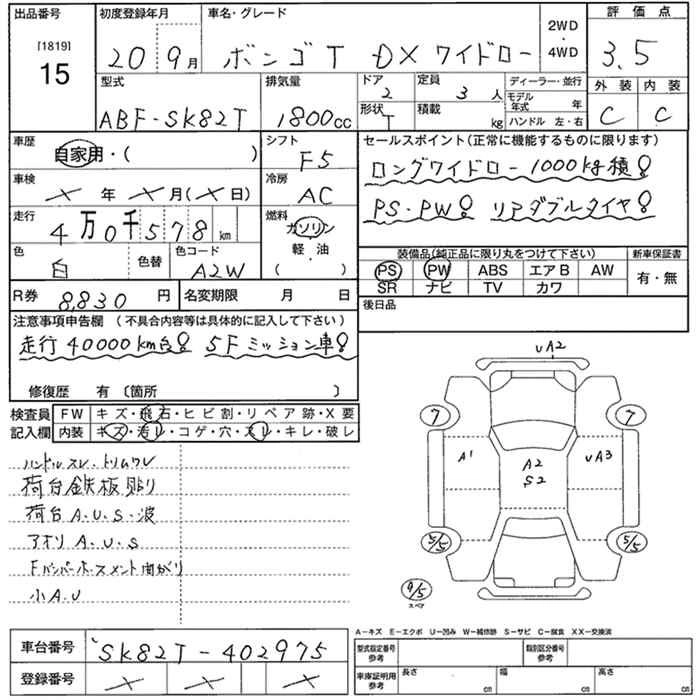 出品番号 初度登録年月 車名・グレード 2WD・4WD 評価点
[1819] 15 20 9月 ボンゴT DXワイドロー 3.5
型式 排気量 ドア 2 定員 3人 ディーラー・並行 外装 内装
ABF-SK82T 1800cc 形状 T 積載 kg モデル年式 年 C C
ハンドル 左・右
車歴 自家用・( ) シフト F5 セールスポイント(正常に機能するものに限ります)
車検 ×年×月(×日) 冷房 AC ロングワイドロー1000kg積!
走行 4万0千578km 燃料 ガソリン 軽・油 ( ) PS・PW! リアダブルタイヤ!
色 白 色替 色コード A2W 装備品(純正品に限り丸をつけて下さい) 新車保証書
PS PW ABS エアB AW 有・無
SR ナビ TV カワ
R券 8,830円 名変期限 月 日 後日品
注意事項申告欄 (不具合内容等は具体的に記入して下さい)
走行40000km台! 5Fミッション車!
修復歴 有 〔箇所 〕
検査員 FW キズ・飛石・ヒビ割・リペア跡・X要
記入欄 内装 キズ・汚レ・コゲ・穴・スレ・キレ・破レ
ハンドルスレ・トリムワレ
荷台鉄板貼り
荷台A.U.S.波
アオリA.U.S
Fバンパーホースメント曲がり
小A.U
UA2
7 7
A1 A2 S2 UA3
5/5 5/5
4/5
スペア
A－キズ E－エクボ U－凹み W－補修跡 S－サビ C－腐食 XX－交換済
車台番号 SK82T-402975 型式指定番号 参考 類別区分番号 参考
登録番号 × × × 車庫証明用 参考 長さ cm 幅 cm 高さ cm